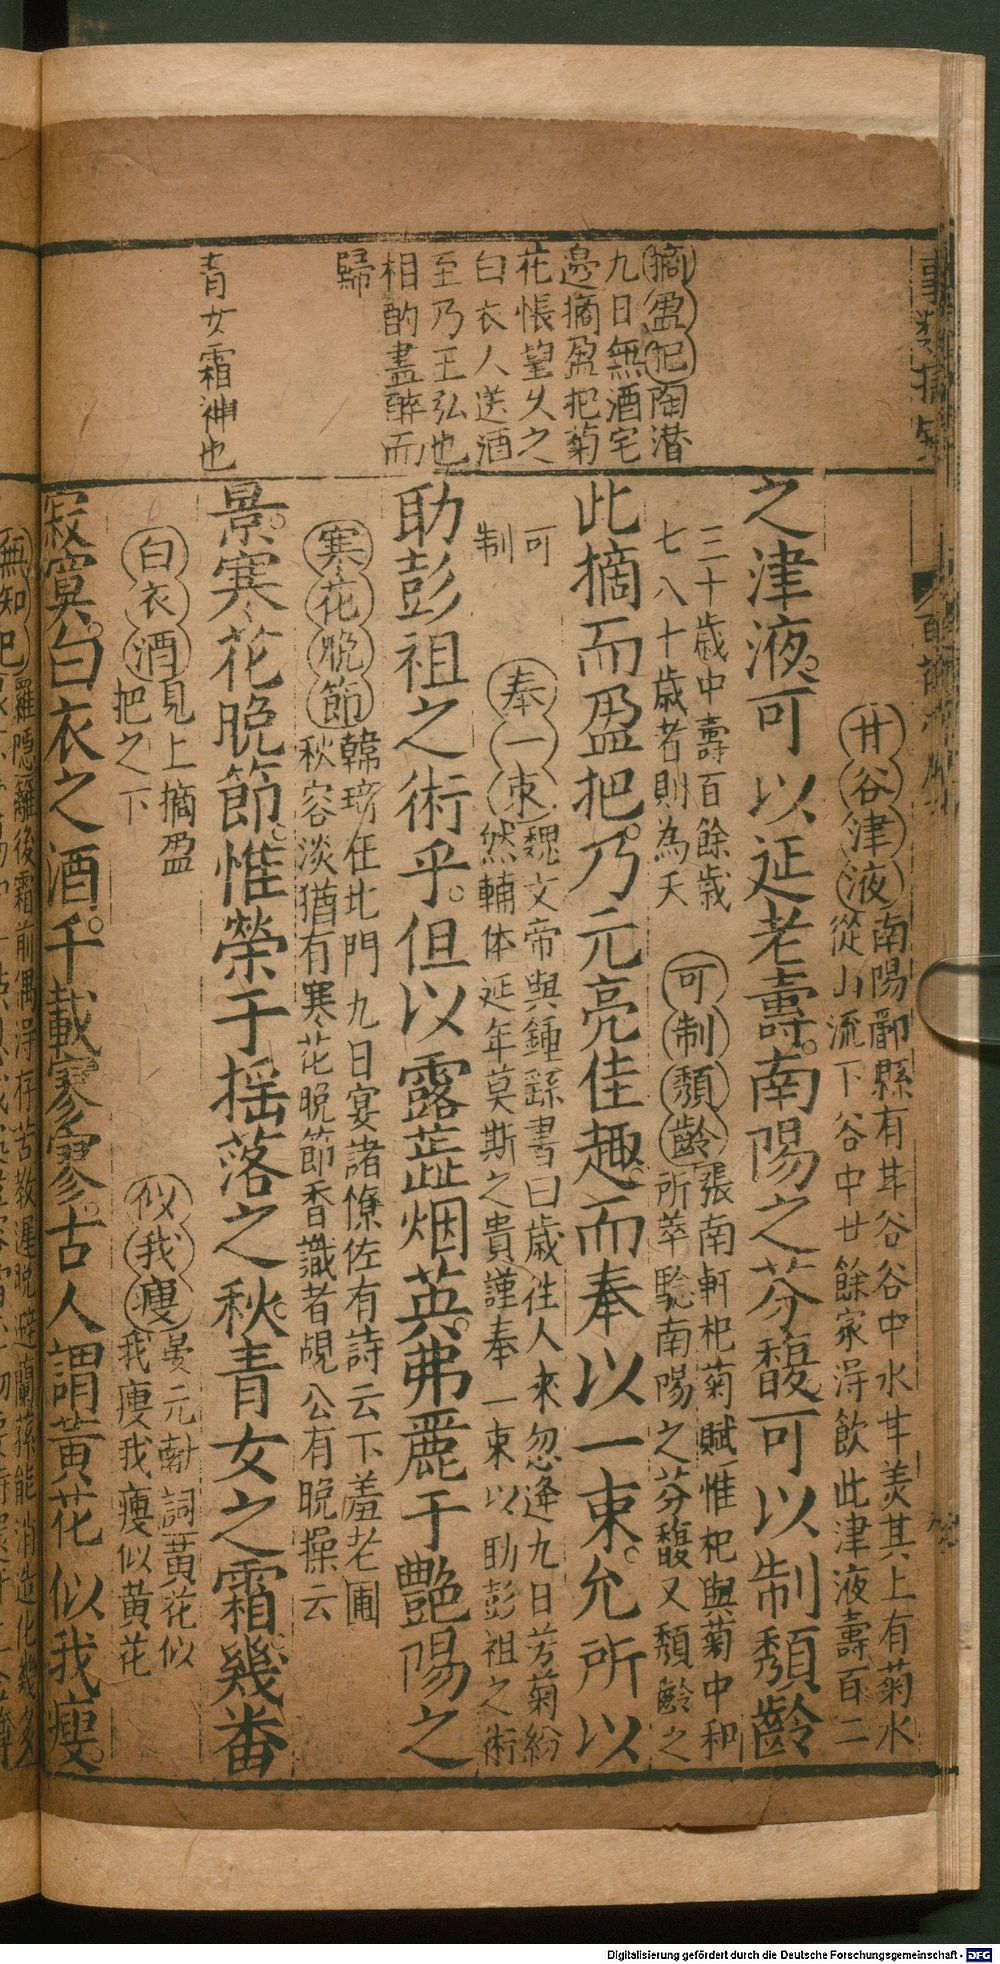 摘盈把陶潜
九日無酒宅
邉摘盈把菊
花悵望久之
白衣人送酒
至乃王弘也
相酌盡醉而
歸
青女霜神也
甘谷津液南陽酈縣有甘谷谷中水甘美其上有菊水
從山流下谷中廿餘家淂飲此津液壽百二
之津液可以延老壽。南陽之芬馥可以制頽齡
三十歳中壽百餘歳
七八十歳者則為夭
可制頽齡張南軒杞菊賦惟杞與菊中和
所萃騐南陽之芬馥又頽齡之
可
制
此摘而盈把。乃元亮佳趣。而奉以一束。允所以
奉一束魏文帝與鍾繇書曰歳徃人來忽逢九日芳菊紛
然輔体延年莫斯之貴謹奉一束以助彭祖之術
助彭祖之術乎。但以露蘂烟英。弗麗于艷陽之
寒花晩節韓琦任北門九日宴諸僚佐有詩云下羞老圃
秋容淡猶有寒花晩節香識者覘公有晩操云
景。寒花晩節。惟榮于揺落之秋。青女之霜。幾番
白衣酒見上摘盈
把之下
似我瘦晏元献詞黄花似
我瘦我瘦似黄花
寂寞。白衣之酒。千載寥寥。古人謂黄花似我瘦。
無知己羅隠籬後霜前偶淂存苦教遲晩避蘭蓀能消造化幾多
Digitalisierung gefördert durch die Deutsche Forschungsgemeinschaft - DFG